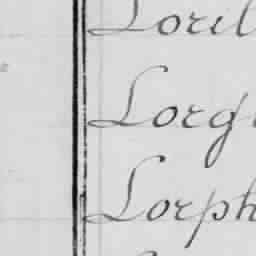 Loril
Lorg
Lorph